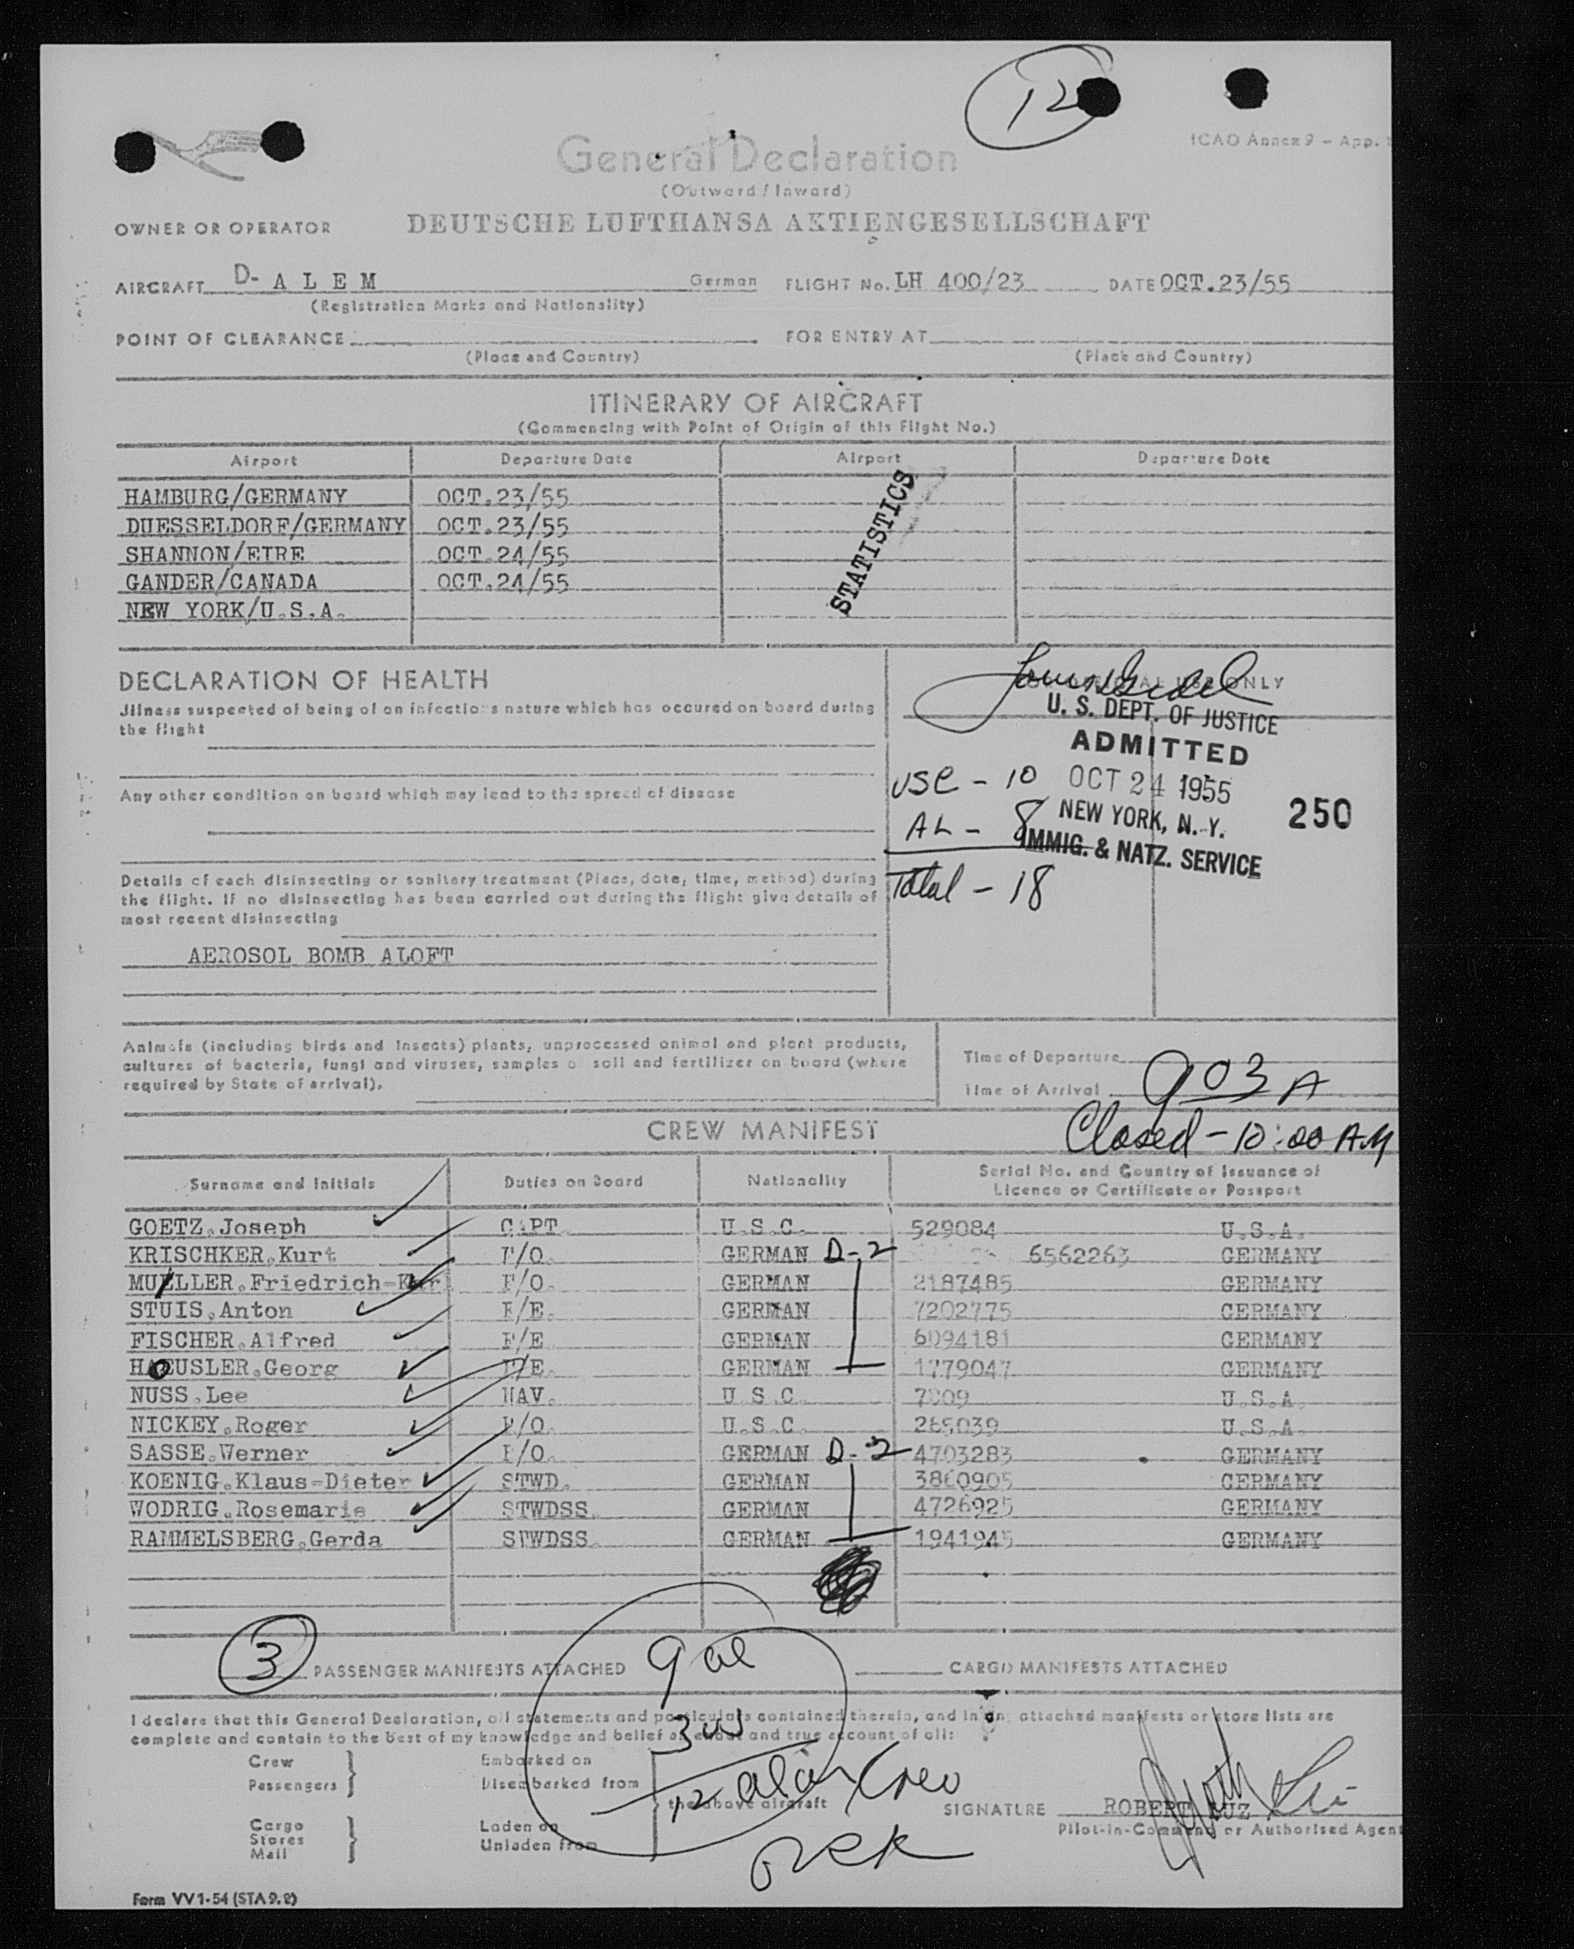 12
ICAO Annex 9 – App. 1
General Declaration
(Outward / Inward)
OWNER OR OPERATOR DEUTSCHE LUFTHANSA AKTIENGESELLSCHAFT
AIRCRAFT D- A L E M German FLIGHT No. LH 400/23 DATE OCT.23/55
(Registration Marks and Nationality)
POINT OF CLEARANCE FOR ENTRY AT
(Place and Country) (Place and Country)
ITINERARY OF AIRCRAFT
(Commencing with Point of Origin of this Flight No.)
Airport Departure Date Airport Departure Date
HAMBURG/GERMANY OCT.23/55
DUESSELDORF/GERMANY OCT.23/55
SHANNON/EIRE OCT.24/55
GANDER/CANADA OCT.24/55
NEW YORK/U.S.A.
STATISTICS
DECLARATION OF HEALTH
Jllness suspected of being of an infectious nature which has occured on board during
the flight
Any other condition on board which may lead to the spread of disease
Details of each disinsecting or sanitary treatment (Place, date, time, method) during
the flight. If no disinsecting has been carried out during the flight give details of
most recent disinsecting
AEROSOL BOMB ALOFT
OFFICIAL USE ONLY
U. S. DEPT. OF JUSTICE
ADMITTED
USC - 10 OCT 24 1955
250
AL - 8 NEW YORK, N. Y.
IMMIG. & NATZ. SERVICE
Total - 18
Animals (including birds and insects) plants, unprocessed animal and plant products,
cultures of bacteria, fungi and viruses, samples of soil and fertilizer on board (where
required by State of arrival).
Time of Departure
Time of Arrival 903 A
Closed - 10:00 A.M
CREW MANIFEST
Surname and Initials Duties on Board Nationality Serial No. and Country of Issuance of
Licence or Certificate or Passport
GOETZ,Joseph CAPT. U.S.C. 529084 U.S.A.
KRISCHKER,Kurt F/O. GERMAN D-2 6562263 GERMANY
MUELLER,Friedrich-Kar F/O. GERMAN 2187485 GERMANY
STUIS,Anton F/E. GERMAN 7202775 GERMANY
FISCHER,Alfred F/E GERMAN 6094181 GERMANY
HAEUSLER,Georg F/E. GERMAN 1779047 GERMANY
NUSS,Lee NAV. U.S.C. 7809 U.S.A.
NICKEY,Roger R/O. U.S.C. 265039 U.S.A.
SASSE,Werner R/O. GERMAN D-2 4703283 GERMANY
KOENIG,Klaus-Dieter STWD. GERMAN 3860905 GERMANY
WODRIG,Rosemarie STWDSS. GERMAN 4726925 GERMANY
RAMMELSBERG,Gerda STWDSS. GERMAN 1941945 GERMANY
3 PASSENGER MANIFESTS ATTACHED CARGO MANIFESTS ATTACHED
9 al
3 us
12 alien Crew
I declare that this General Declaration, all statements and particulars contained therein, and in any attached manifests or store lists are
complete and contain to the best of my knowledge and belief an exact and true account of all:
Crew Embarked on
Passengers Disembarked from
the above aircraft
Cargo Laden on
Stores Unladen from
Mail
SIGNATURE ROBERT LUZ
Pilot-in-Command or Authorised Agent
Form VV 1-54 (STA 9.2)